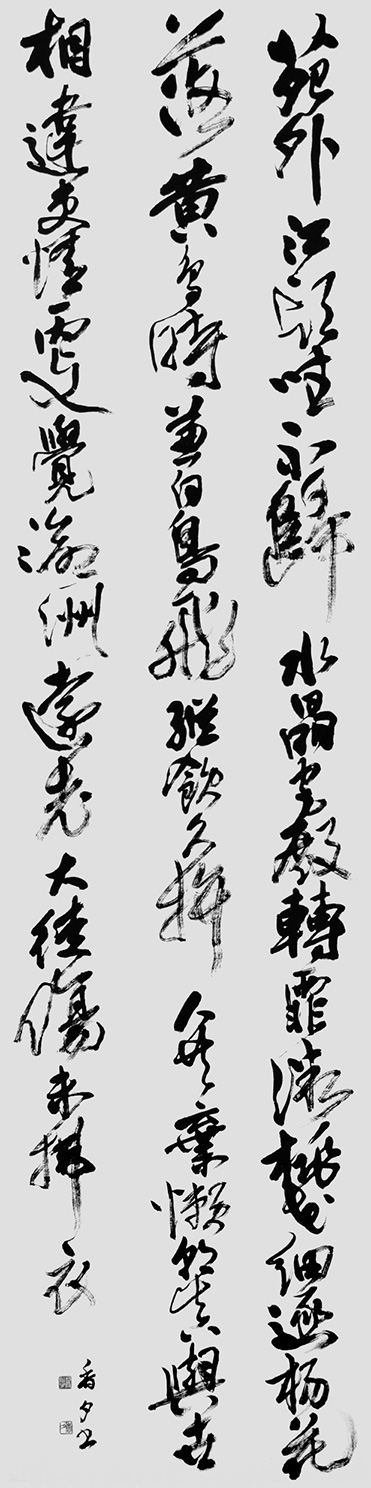 苑外江頭坐不歸水晶宮殿轉霏微桃花細逐楊花
落黃鳥時兼白鳥飛縱飲久拚人共棄懶朝真與世
相違吏情更覺滄洲遠老大徒傷未拂衣
香夕書